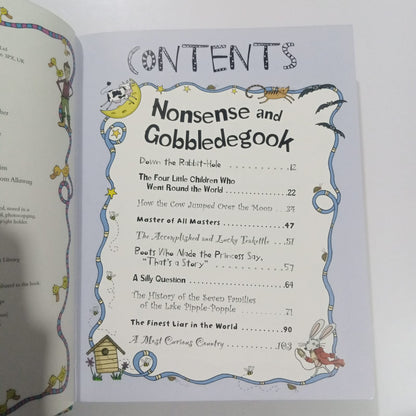 Ltd
3PY, UK
CONTENTS
Nonsense and
Gobbledegook
Down the Rabbit-Hole . . . . . . . . . . 12
The Four Little Children Who
Went Round the World . . . . . . . . . . 22
How the Cow Jumped Over the Moon . . . 34
Master of All Masters . . . . . . . . . . 47
The Accomplished and Lucky Teakettle . . 51
Boots Who Made the Princess Say,
"That's a Story" . . . . . . . . . . 57
A Silly Question . . . . . . . . . . 64
The History of the Seven Families
of the Lake Pipple-Popple . . . . . . . 71
The Finest Liar in the World . . . . . . 90
A Most Curious Country . . . . . . . 103
stored in a
photocopying,
right holder.
Library
to the book